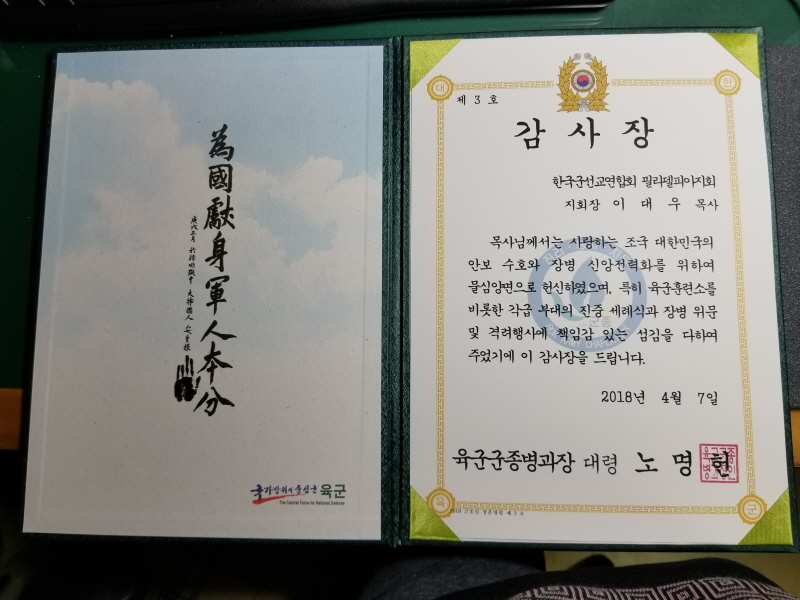 為國獻身軍人本分
庚戌三月 於旅順獄中 大韓國人 安重根
국가방위의 중심군 육군
The Central Force for National Defense
대 한
제 3 호
감 사 장
한국군선교연합회 필라델피아지회
지회장 이 대 우 목사
목사님께서는 사랑하는 조국 대한민국의
안보 수호와 장병 신앙전력화를 위하여
물심양면으로 헌신하였으며, 특히 육군훈련소를
비롯한 각급 부대의 진중 세례식과 장병 위문
및 격려행사에 책임감 있는 섬김을 다하여
주었기에 이 감사장을 드립니다.
2018년 4월 7일
육군군종병과장 대령 노 명 헌
육 군